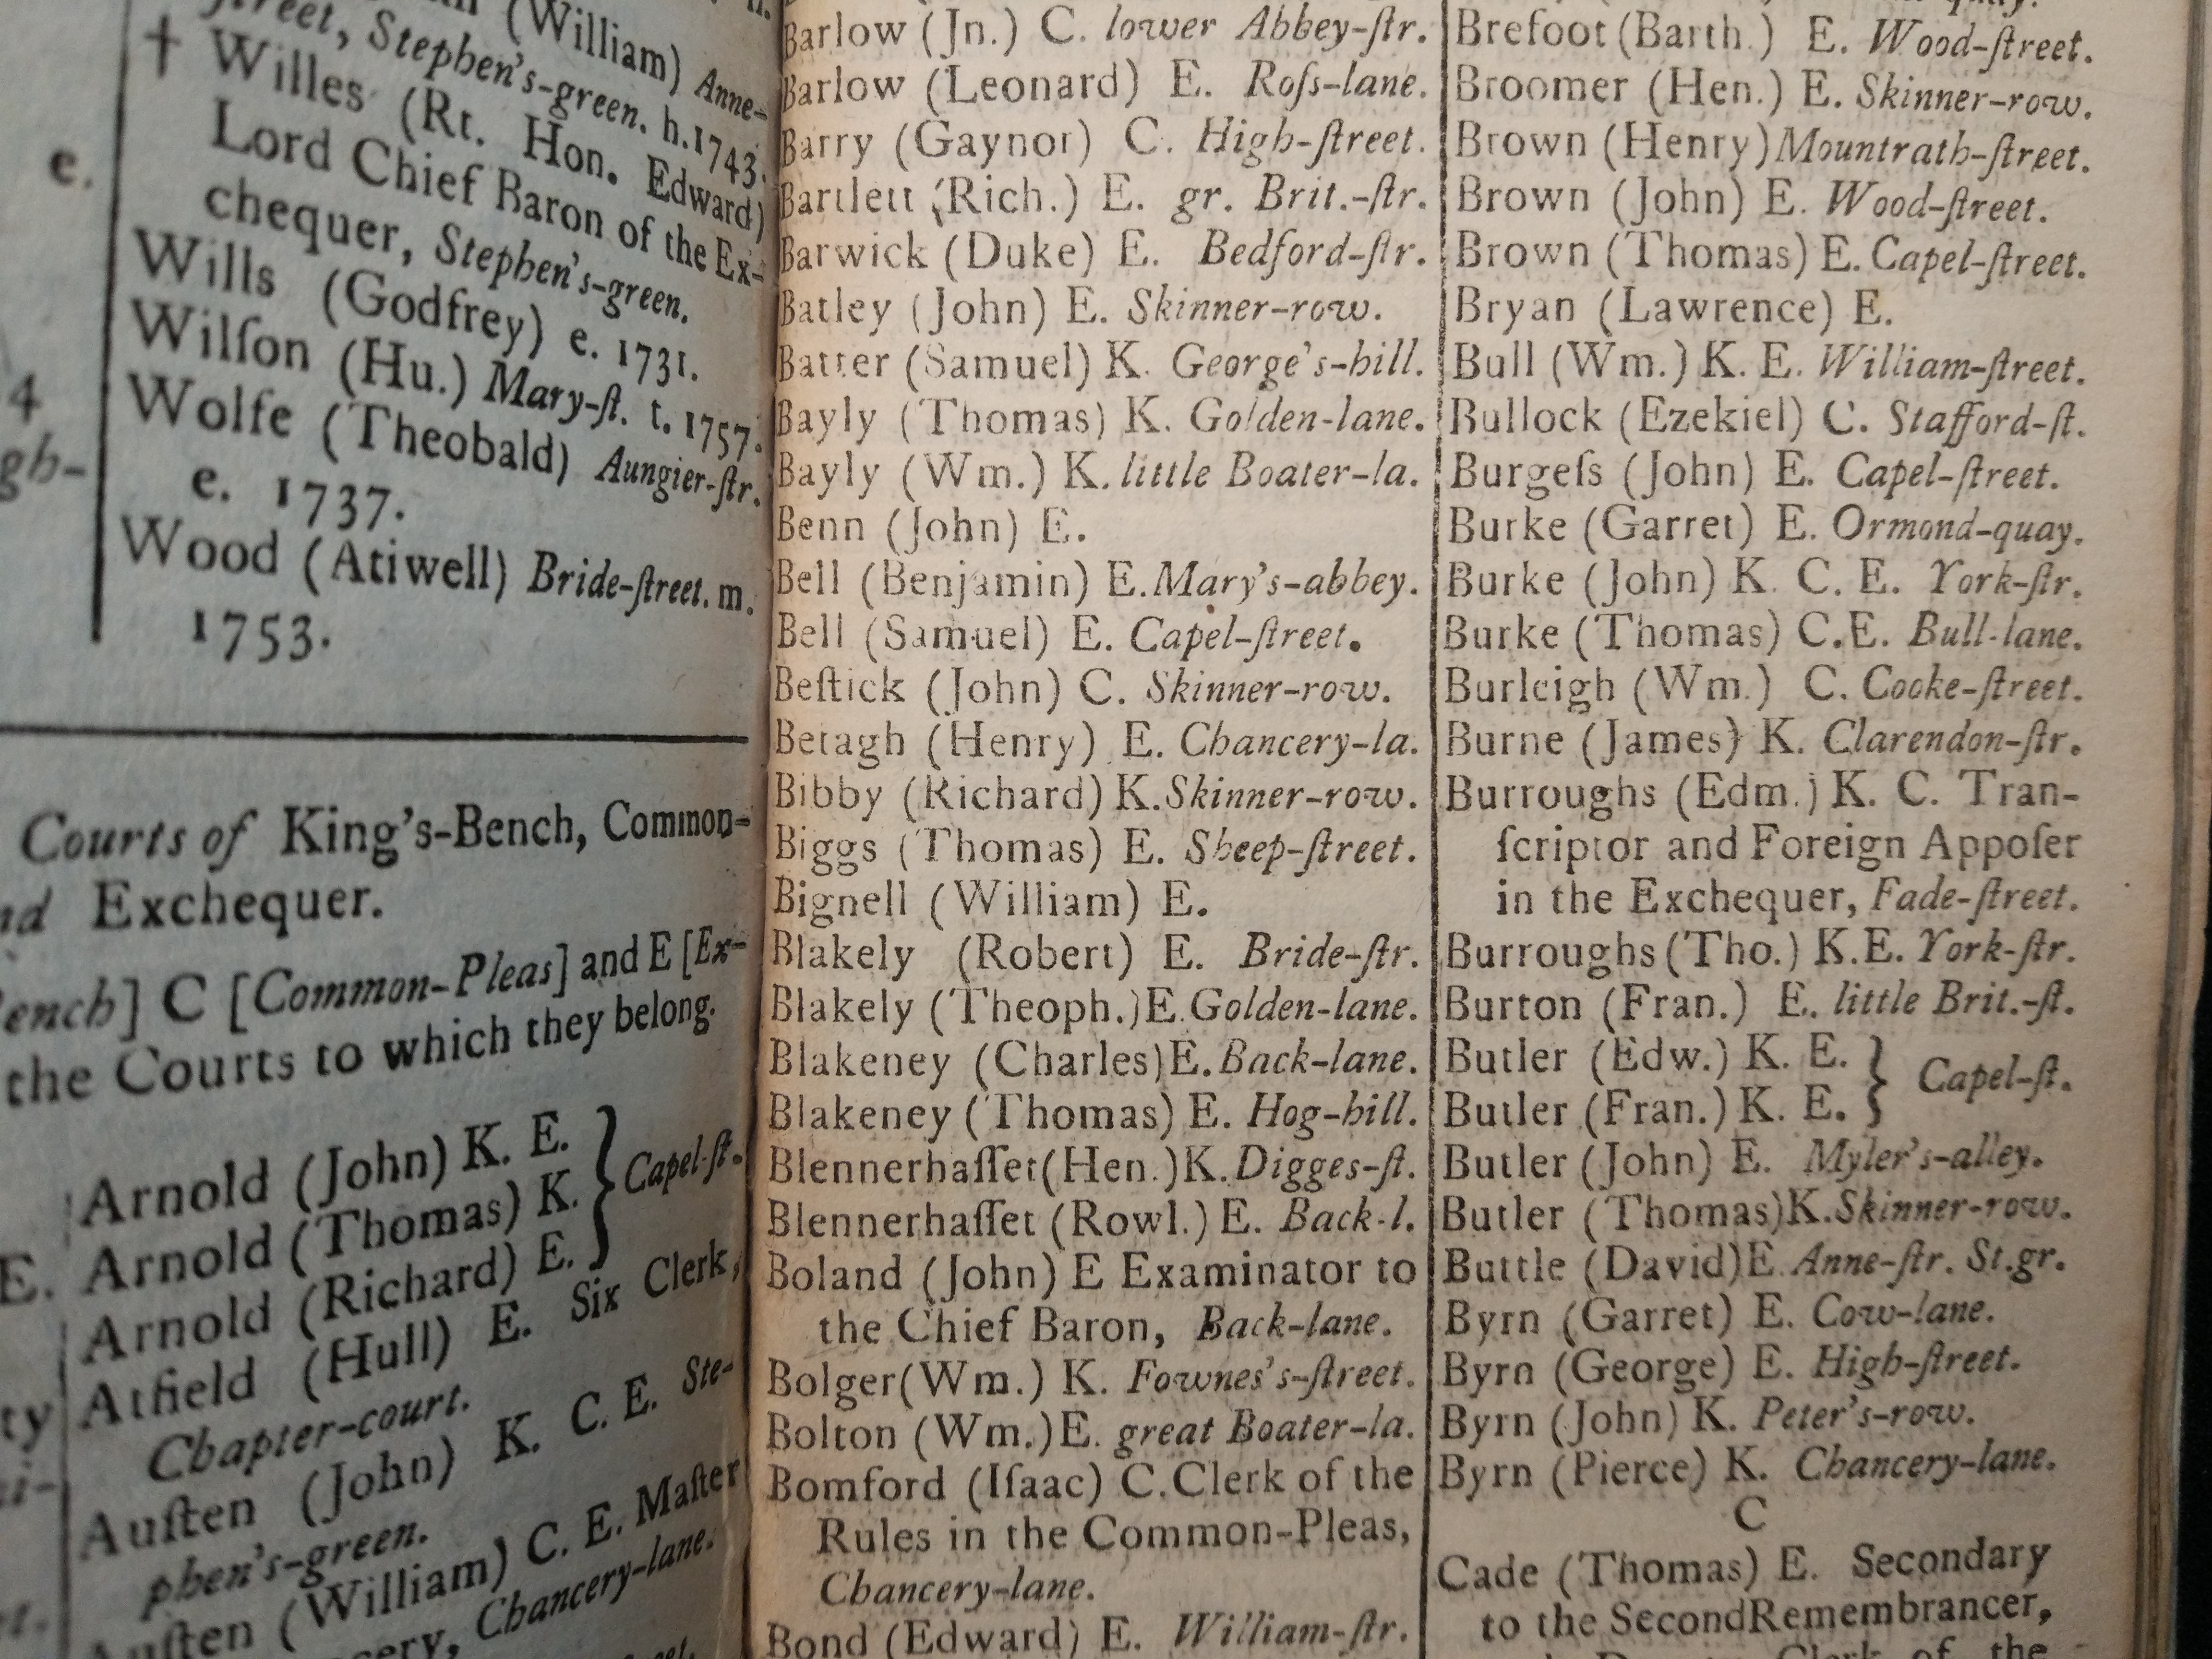 e.
4
gh-
(William) Anne-
ſtreet, Stephen's-green. h. 1743.
† Willes (Rt. Hon. Edward)
Lord Chief Baron of the Ex-
chequer, Stephen's-green.
Wills (Godfrey) e. 1731.
Wilſon (Hu.) Mary-ſt. t. 1757.
Wolfe (Theobald) Aungier-ſtr.
e. 1737.
Wood (Atiwell) Bride-ſtreet. m.
1753.
Courts of King's-Bench, Common-
Exchequer.
] C [Common-Pleas] and E [Ex-
the Courts to which they belong.
E.
Arnold (John) K. E.
Arnold (Thomas) K. } Capel-ſt.
Arnold (Richard) E.
Atfield (Hull) E. Six Clerk,
Chapter-court.
Auſten (John) K. C. E. Ste-
phen's-green.
Auſten (William) C. E. Maſter
Chancery-lane.
Barlow (Jn.) C. lower Abbey-ſtr.
Barlow (Leonard) E. Roſs-lane.
Barry (Gaynor) C. High-ſtreet.
Bartlett (Rich.) E. gr. Brit.-ſtr.
Barwick (Duke) E. Bedford-ſtr.
Batley (John) E. Skinner-row.
Batter (Samuel) K. George's-hill.
Bayly (Thomas) K. Golden-lane.
Bayly (Wm.) K. little Boater-la.
Benn (John) E.
Bell (Benjamin) E. Mary's-abbey.
Bell (Samuel) E. Capel-ſtreet.
Beſtick (John) C. Skinner-row.
Betagh (Henry) E. Chancery-la.
Bibby (Richard) K. Skinner-row.
Biggs (Thomas) E. Sheep-ſtreet.
Bignell (William) E.
Blakely (Robert) E. Bride-ſtr.
Blakely (Theoph.) E. Golden-lane.
Blakeney (Charles) E. Back-lane.
Blakeney (Thomas) E. Hog-hill.
Blennerhaſſet (Hen.) K. Digges-ſt.
Blennerhaſſet (Rowl.) E. Back-l.
Boland (John) E Examinator to
the Chief Baron, Back-lane.
Bolger (Wm.) K. Fownes's-ſtreet.
Bolton (Wm.) E. great Boater-la.
Bomford (Iſaac) C. Clerk of the
Rules in the Common-Pleas,
Chancery-lane.
Bond (Edward) E. William-ſtr.
Brefoot (Barth.) E. Wood-ſtreet.
Broomer (Hen.) E. Skinner-row.
Brown (Henry) Mountrath-ſtreet.
Brown (John) E. Wood-ſtreet.
Brown (Thomas) E. Capel-ſtreet.
Bryan (Lawrence) E.
Bull (Wm.) K. E. William-ſtreet.
Bullock (Ezekiel) C. Stafford-ſt.
Burgeſs (John) E. Capel-ſtreet.
Burke (Garret) E. Ormond-quay.
Burke (John) K. C. E. York-ſtr.
Burke (Thomas) C.E. Bull-lane.
Burleigh (Wm.) C. Cooke-ſtreet.
Burne (James) K. Clarendon-ſtr.
Burroughs (Edm.) K. C. Tran-
ſcriptor and Foreign Appoſer
in the Exchequer, Fade-ſtreet.
Burroughs (Tho.) K.E. York-ſtr.
Burton (Fran.) E. little Brit.-ſt.
Butler (Edw.) K. E. } Capel-ſt.
Butler (Fran.) K. E.
Butler (John) E. Myler's-alley.
Butler (Thomas) K. Skinner-row.
Buttle (David) E. Anne-ſtr. St.gr.
Byrn (Garret) E. Cow-lane.
Byrn (George) E. High-ſtreet.
Byrn (John) K. Peter's-row.
Byrn (Pierce) K. Chancery-lane.
C
Cade (Thomas) E. Secondary
to the SecondRemembrancer,
Clerk of the